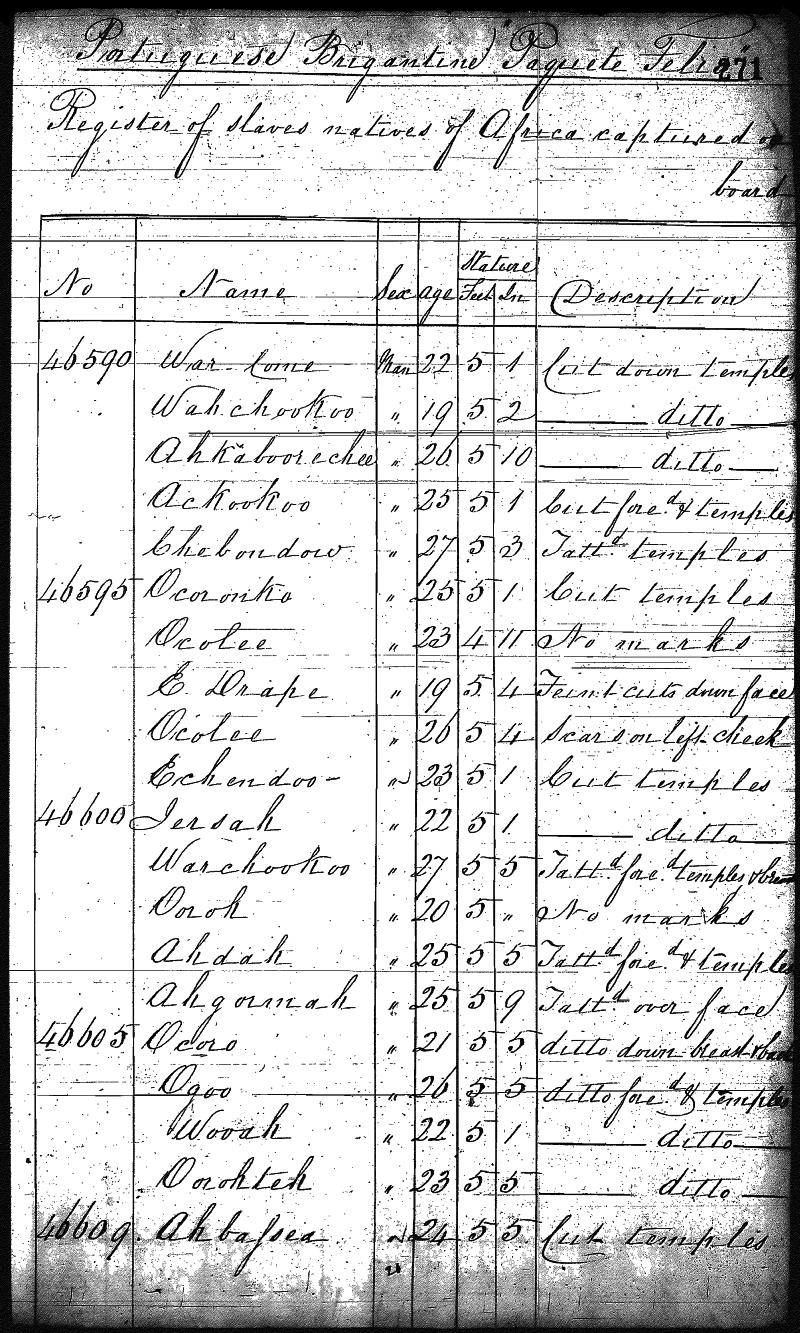 Portuguese Brigantine "Paquete Feliz" 271
Register of slaves natives of Africa captured on
board
No Name Sex Age Stature Feet In Description
46590 War-come Man 22 5 1 Cut down temples
Wahchookoo " 19 5 2 ditto
Ahkaboorechee " 26 5 10 ditto
Ackookoo " 25 5 1 Cut fore.d & temples
Chebondow " 27 5 3 Tatt.d temples
46595 Ocoronko " 25 5 1 Cut temples
Ocolee " 23 4 11 No marks
E. Drape " 19 5 4 Feint cuts down face
Ocolee " 26 5 4 Scars on left cheek
Echendoo- " 23 5 1 Cut temples
46600 Jersah " 22 5 1 ditto
Warchookoo " 27 5 5 Tatt.d fore.d temples &
Oroh " 20 5 " No marks
Ahdah " 25 5 5 Tatt.d fore.d & temples
Ahgormah " 25 5 9 Tatt.d over face
46605 Ocoro " 21 5 5 ditto down breast & back
Ogoo " 26 5 5 ditto fore.d & temples
Wooah " 22 5 1 ditto
Oorohteh " 23 5 5 ditto
46609. Ahbassea " 24 5 5 Cut temples